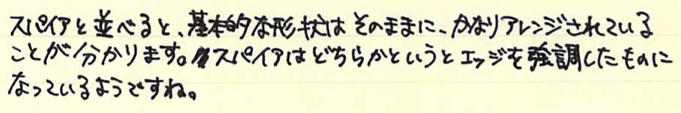 スパイアと並べると、基本的な形状はそのままに、かなりアレンジされている
ことが分かります。スパイアはどちらかというとエッジを強調したものに
なっているようですね。